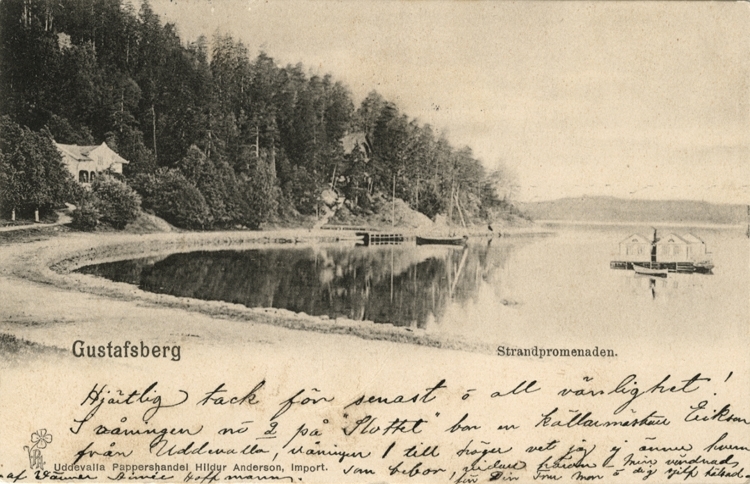 Gustafsberg
Strandpromenaden.
Hjärtlig tack för senast o all vänlighet!
I våningen nö 2 på "Slottet" bor en källarmästare Erikson
från Uddevalla, våningen 1 till höger vet jag ej ännu hvem
Uddevalla Pappershandel Hildur Anderson, Import.
som bebor,
af